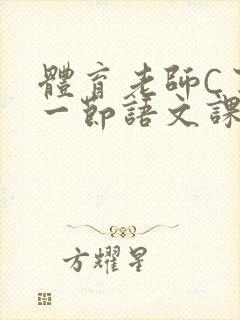 體育老師C
一節語文課
方耀星